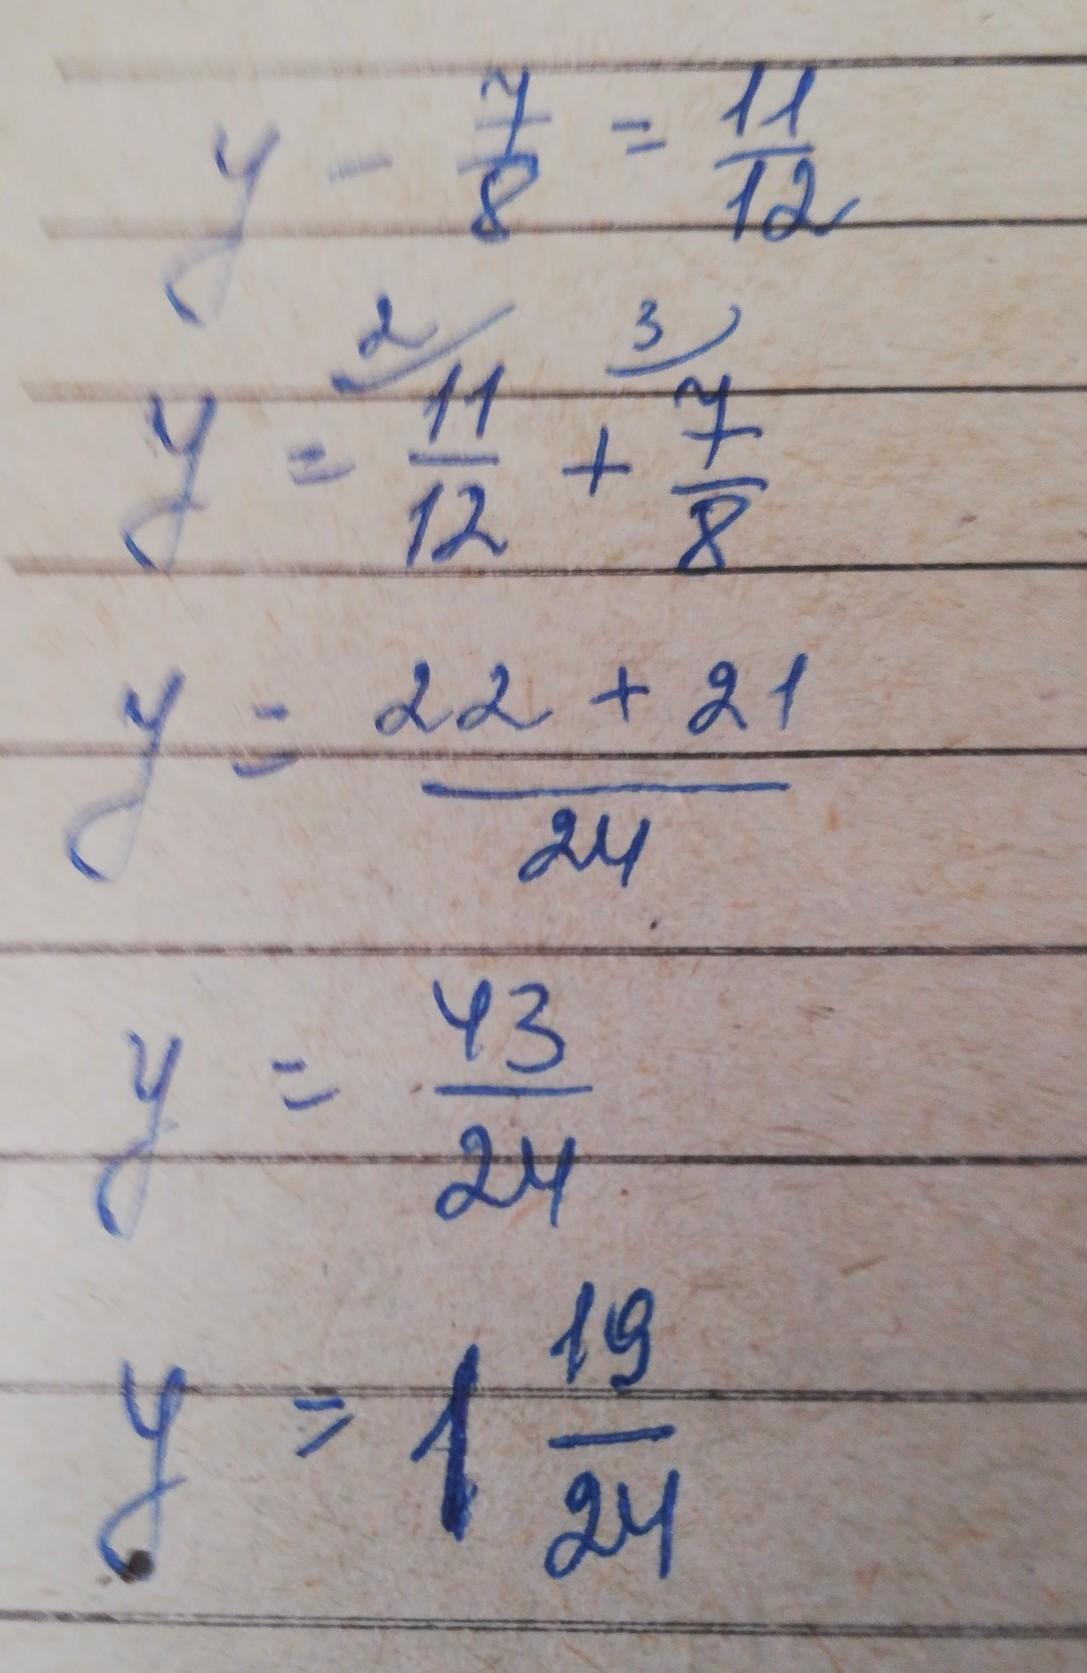 y - 7/8 = 11/12
2 3
y = 11/12 + 7/8
y = 22 + 21 / 24
y = 43/24
y = 1 19/24